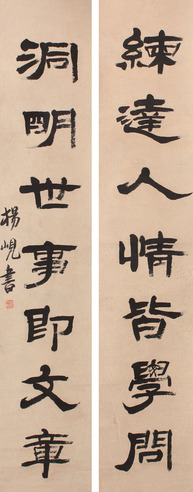 練達人情皆學問
洞明世事即文章
楊峴書